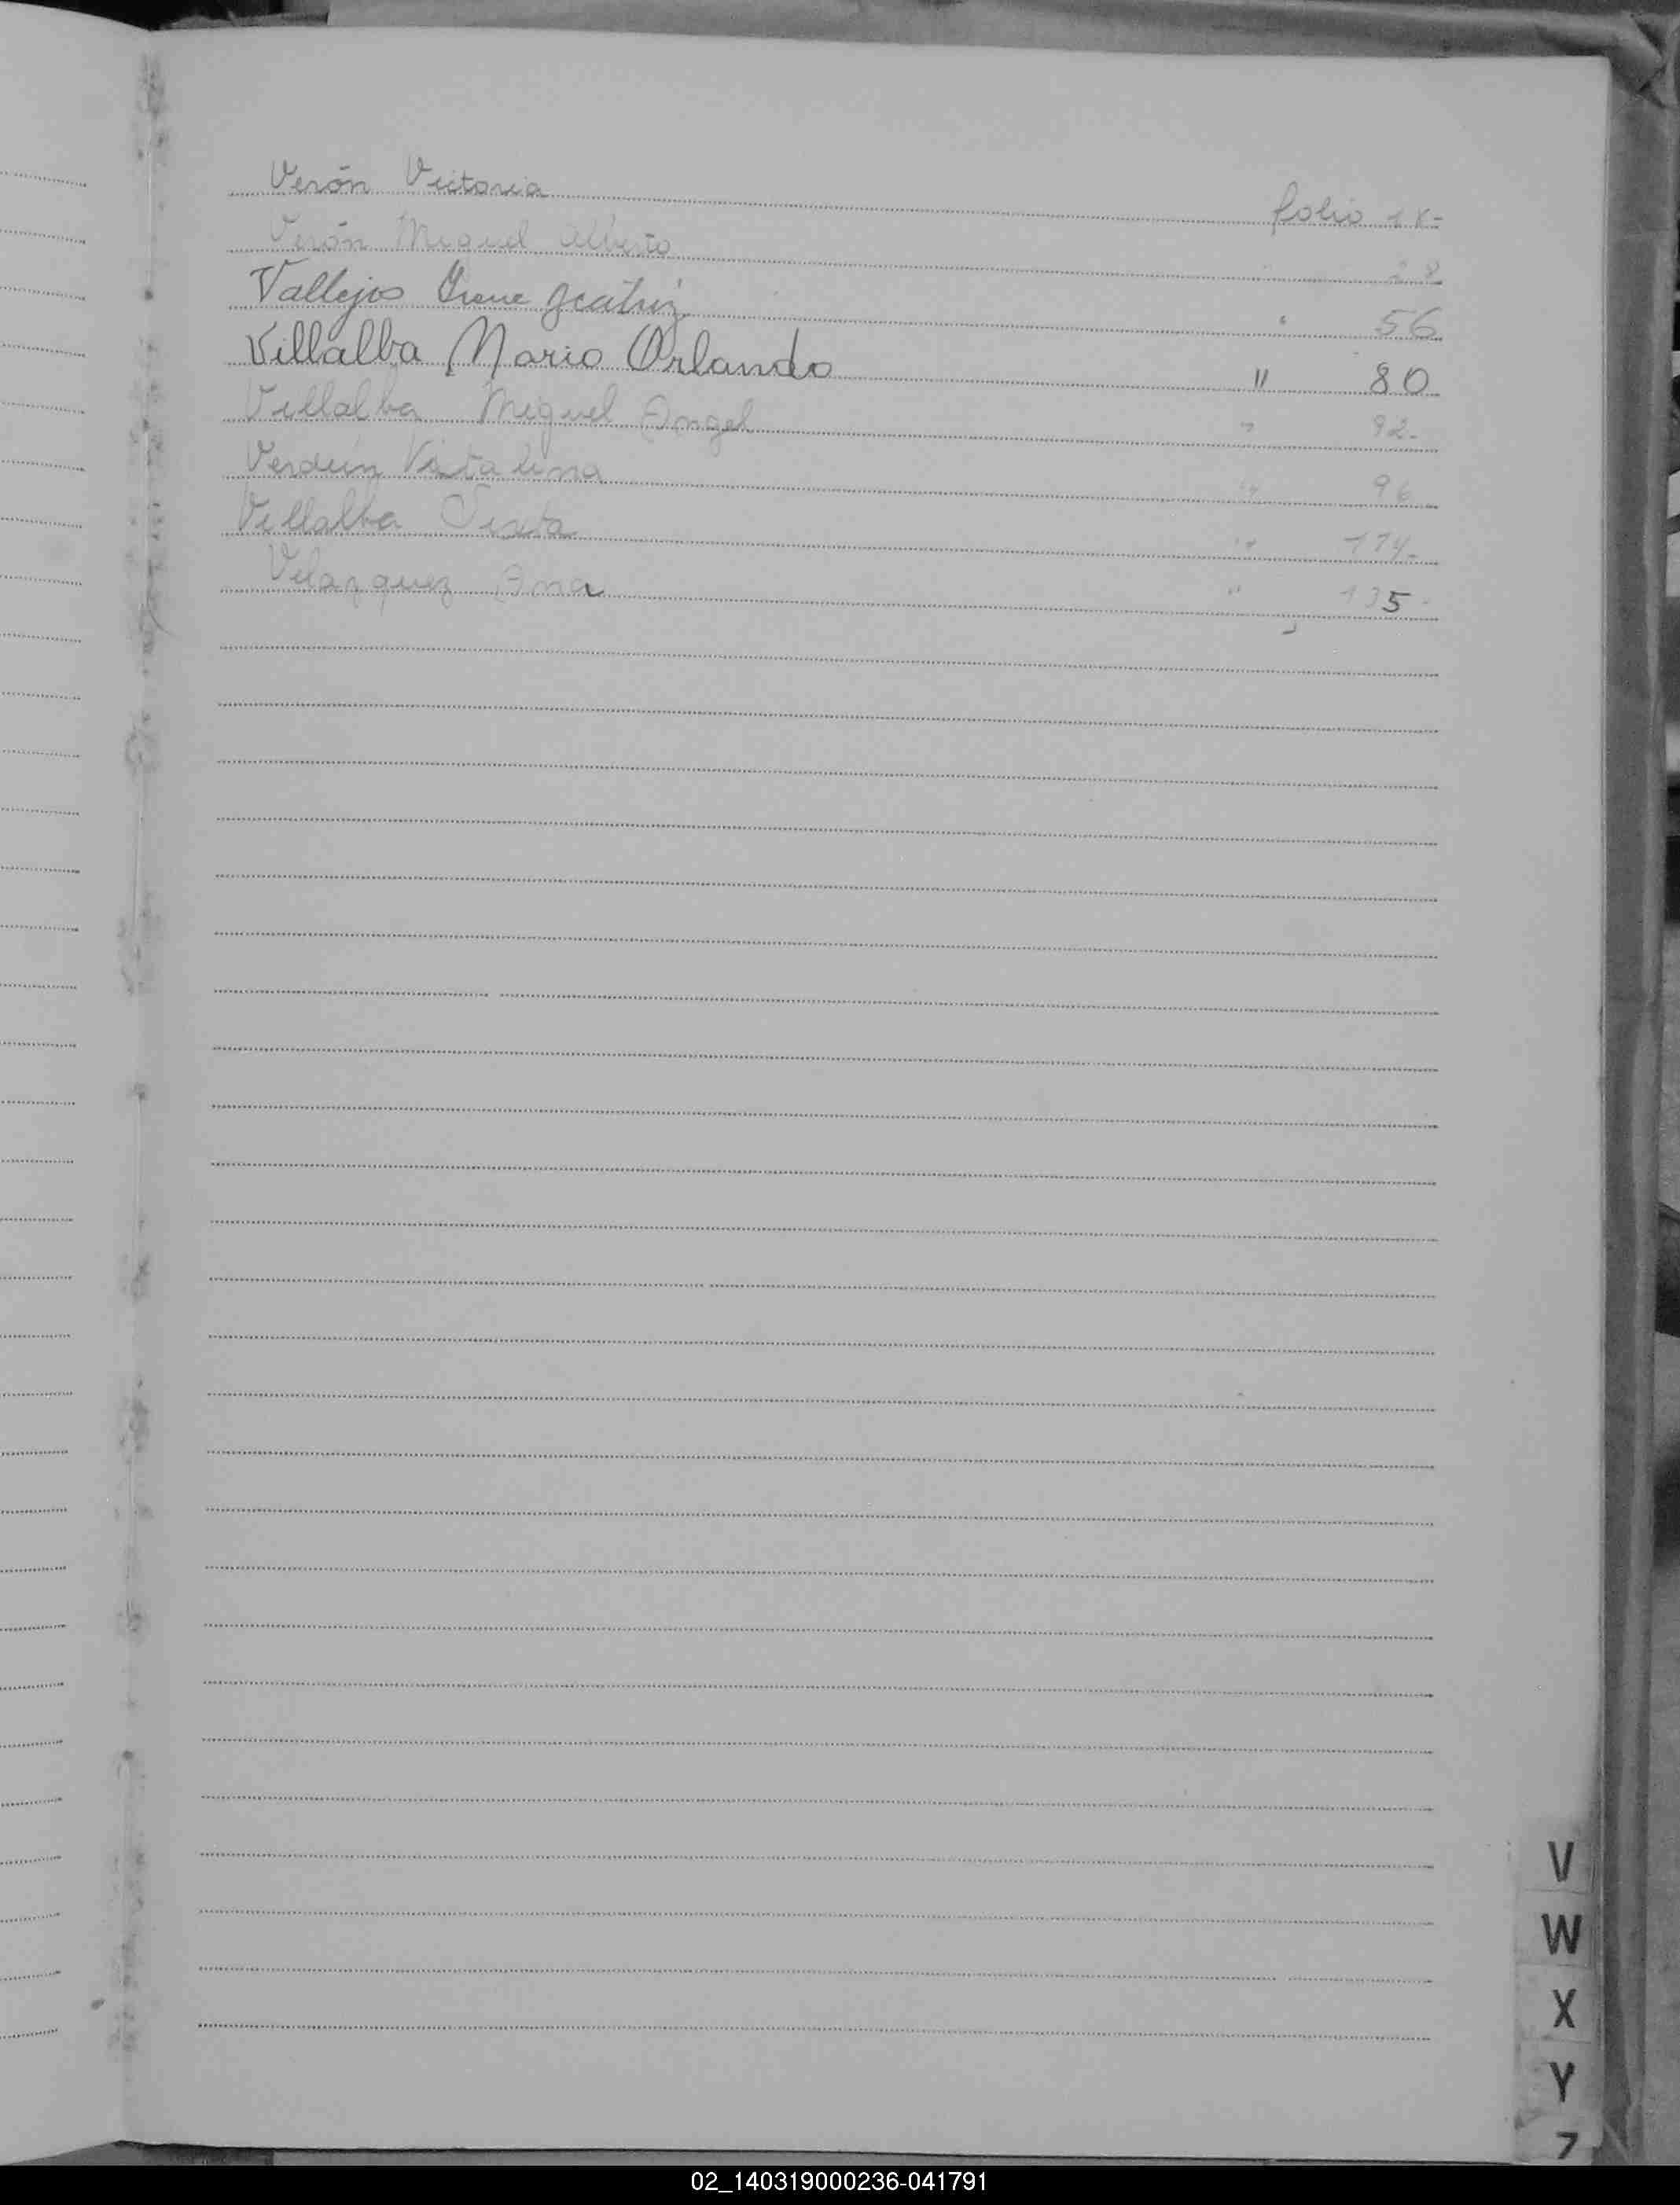 Verón Victoria folio
Verón Miguel Alberto 28
Vallejos Irene 56
Villalba Mario Orlando " 80
Villalba Miguel Angel " 92-
Verdún Vitalina " 96
Villalba "
Velazquez Ana " 135-
V
W
X
Y
Z
02_140319000236-041791